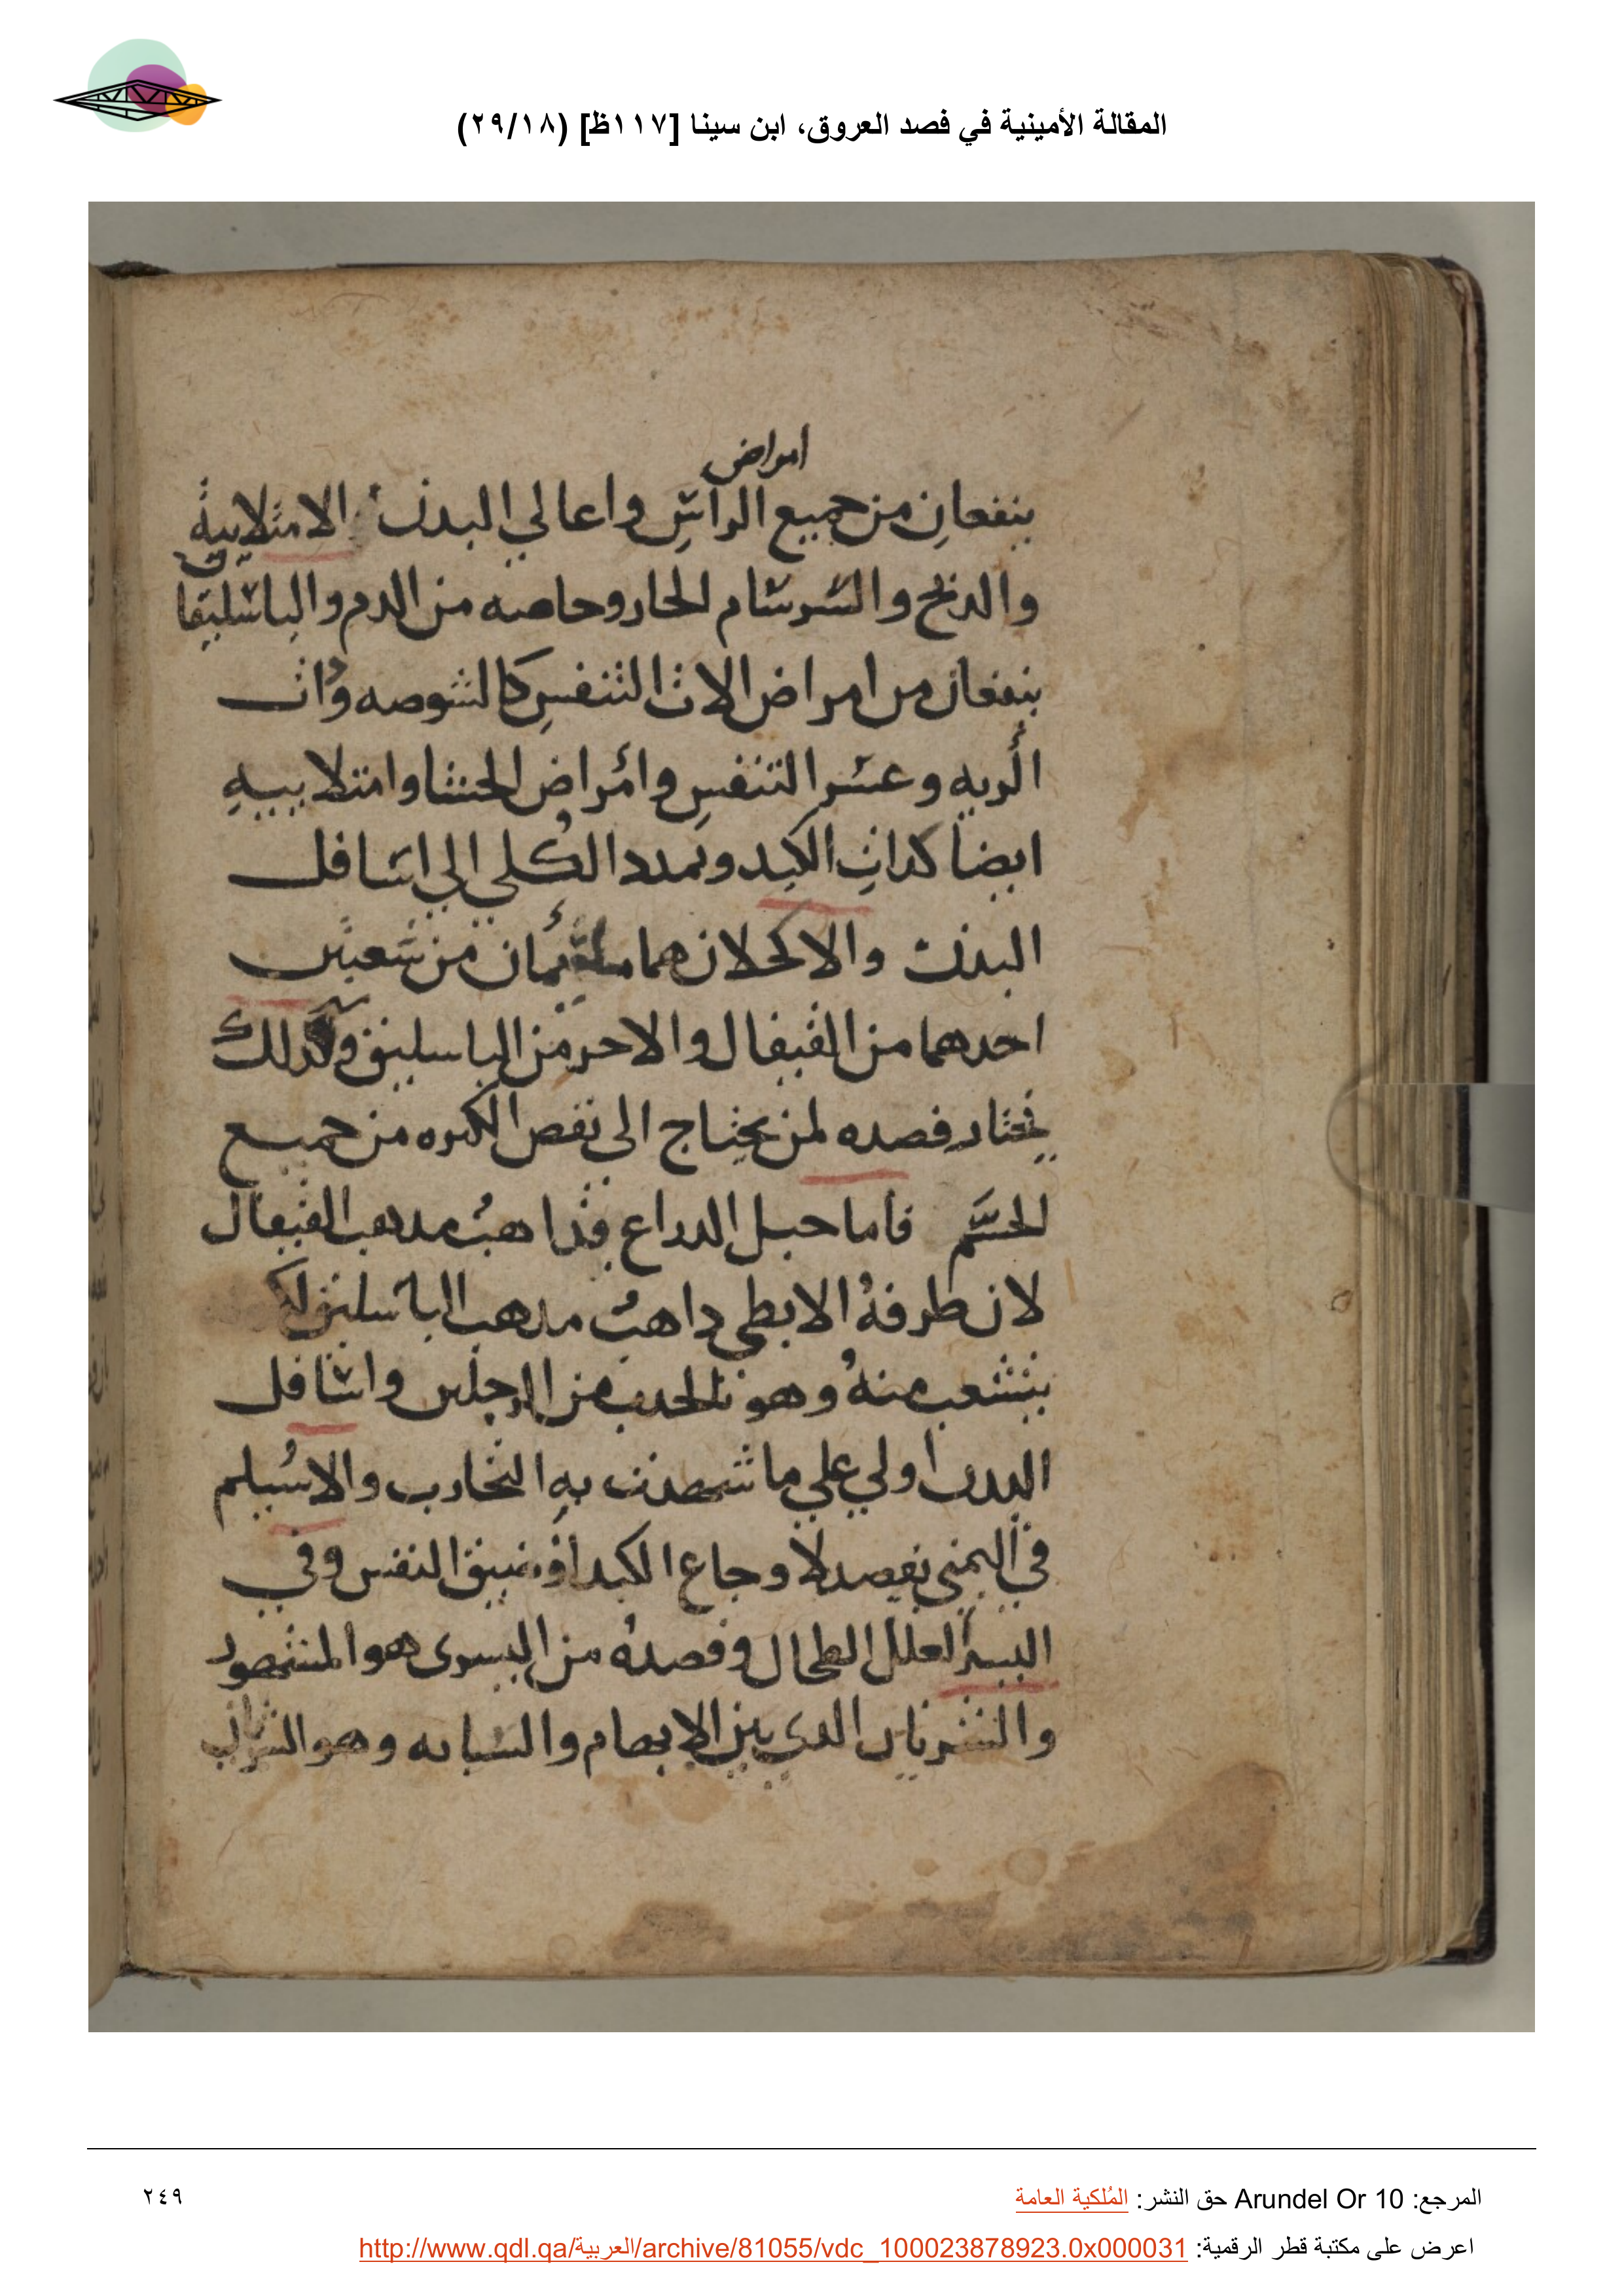 المقالة الأمينية في فصد العروق، ابن سينا [١١٧ظ] (٢٩/١٨)
امراض
ينفعان من جميع الراس واعالي البدن الامتلاييه
والدبح والسرسام الحار وحاصه من الدم والباسليقا
ينفعان من امراض الات التنفس كالشوصه وذات
الريه وعسر التنفس وامراض الحشا وامتلاييه
ايضا كذات الكبد وتمدد الكلي الي اسافل
البدن والاكحلان هما من شعبتين
احدهما من القيفال والاحر من الباسليق وكذلك
يختار فصده لمن يحتاج الى نفص الكثره من جميع
الجسم فاما حبل الدراع فذاهب مذهب القيفال
لان طرفه الابطي داهب مدهب الباسليق
يتشعب منه وهو من الرجلين واسافل
البدن اولي علي ما شهدت به التجارب والاسيلم
في اليمني يفصد لاوجاع الكبد او ضيق النفس وفي
اليسرا لعلل الطحال وفصده من اليسرى هو المشهور
والشريان الدي بين الابهام والسبابه وهو الشريان
المرجع: Arundel Or 10 حق النشر: المُلكية العامة
٢٤٩
اعرض على مكتبة قطر الرقمية: http://www.qdl.qa/العربية/archive/81055/vdc_100023878923.0x000031